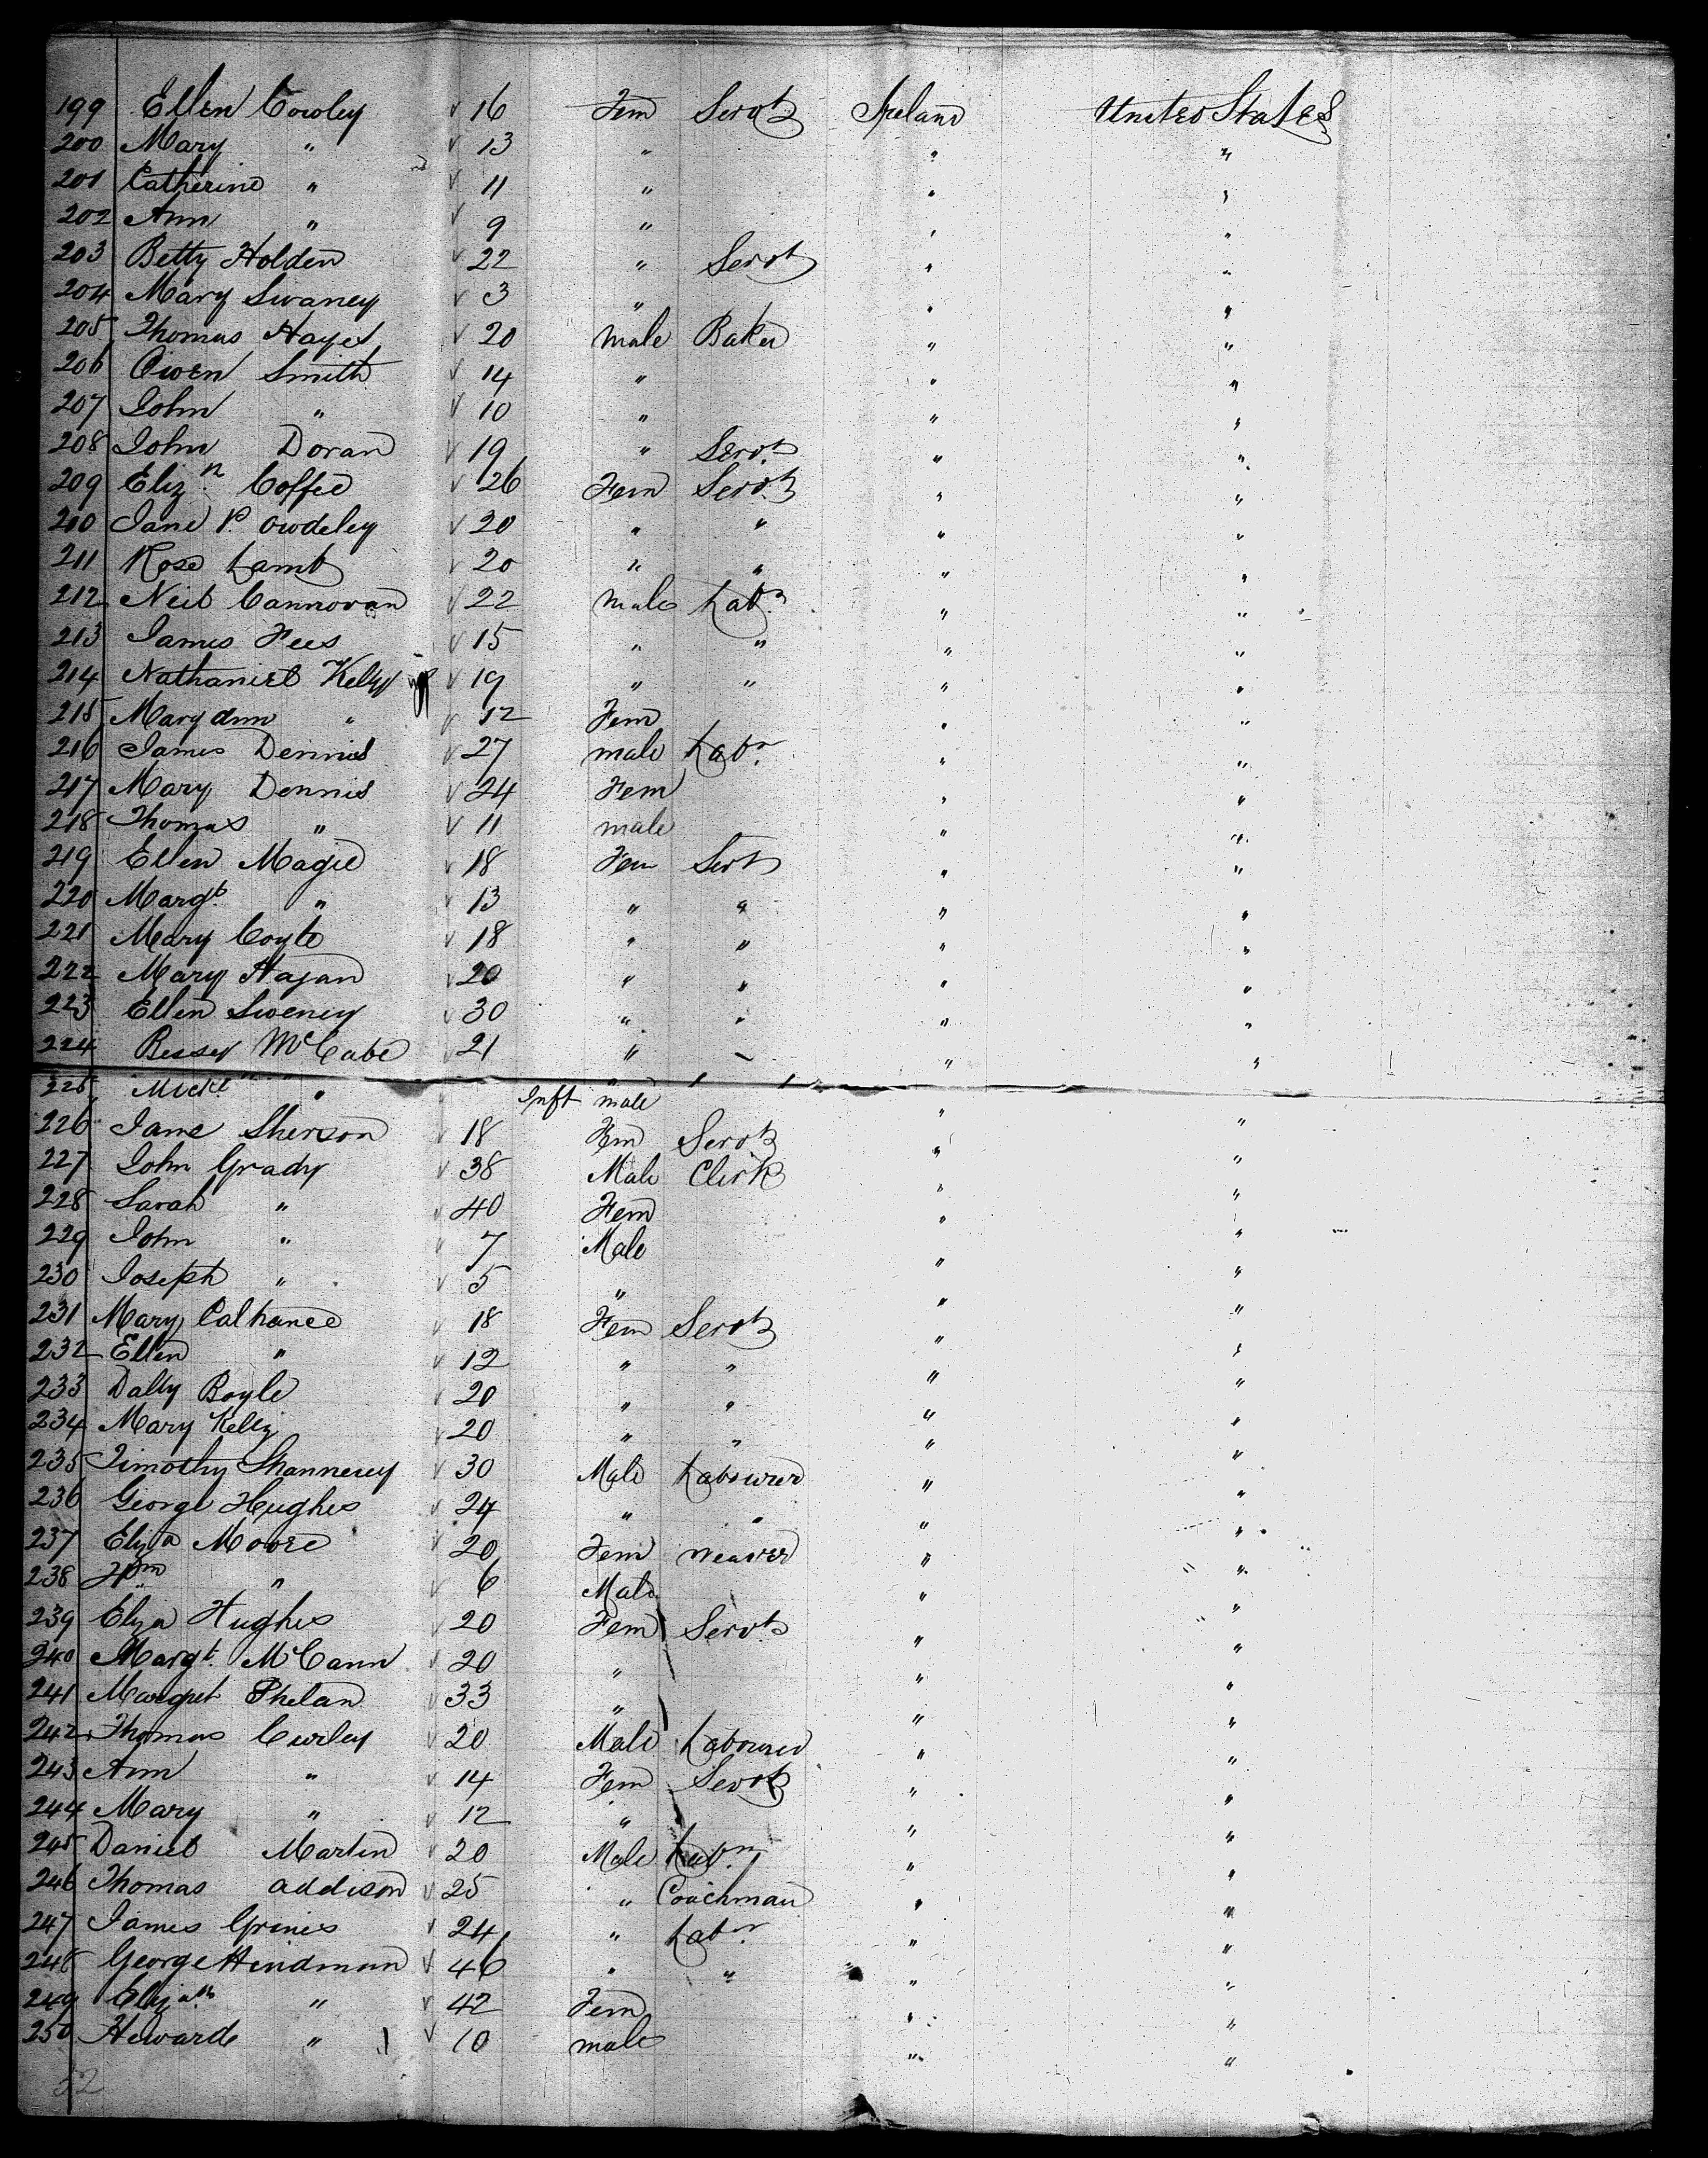 199 Ellen Cowley 16 Fem Servt Ireland United States
200 Mary " 13 " " "
201 Catherine " 11 " " "
202 Ann " 9 " " "
203 Betty Holden 22 " Servt " "
204 Mary Swaney 3 " " "
205 Thomas Hayes 20 male Baker " "
206 Owen Smith 14 " " "
207 John " 10 " " "
208 John Doran 19 " Servt " "
209 Eliz. Coffee 26 Fem Servt " "
210 Jane P. Owdeley 20 " " " "
211 Rose Lamb 20 " " " "
212 Neil Cannovan 22 male Labr " "
213 James Fees 15 " " " "
214 Nathaniel Kelly 19 " " " "
215 Mary Ann " 12 Fem " "
216 James Dennis 27 male Labr. " "
217 Mary Dennis 24 Fem " "
218 Thomas " 11 male " "
219 Ellen Magee 18 Fem Servt " "
220 Margt. " 13 " " " "
221 Mary Coyle 18 " " " "
222 Mary Hagan 20 " " " "
223 Ellen Sweney 30 " " " "
224 Bessey McCabe 21 " " " "
225 Mickl. " Inft male " "
226 Jane Sherson 18 Fem Servt " "
227 John Grady 38 Male Clerk " "
228 Sarah " 40 Fem " "
229 John " 7 Male " "
230 Joseph " 5 " " "
231 Mary Calhance 18 Fem Servt " "
232 Ellen " 12 " " " "
233 Dally Boyle 20 " " " "
234 Mary Kelly 20 " " " "
235 Timothy Shannessy 30 Male Labourer " "
236 George Hughes 24 " " " "
237 Eliza Moore 20 Fem weaver " "
238 Wm " 6 Male " "
239 Eliza Hughes 20 Fem Servt. " "
240 Margt. McCann 20 " " "
241 Margret Phelan 33 " " "
242 Thomas Curley 20 Male Labourer " "
243 Ann " 14 Fem Servt " "
244 Mary " 12 " " "
245 Daniel Martin 20 Male Labr. " "
246 Thomas Addison 25 " Coachman " "
247 James Grines 24 " Labr. " "
248 George Hindman 46 " " " "
249 Elizath " 42 Fem " "
250 Heward " 10 male " "
52